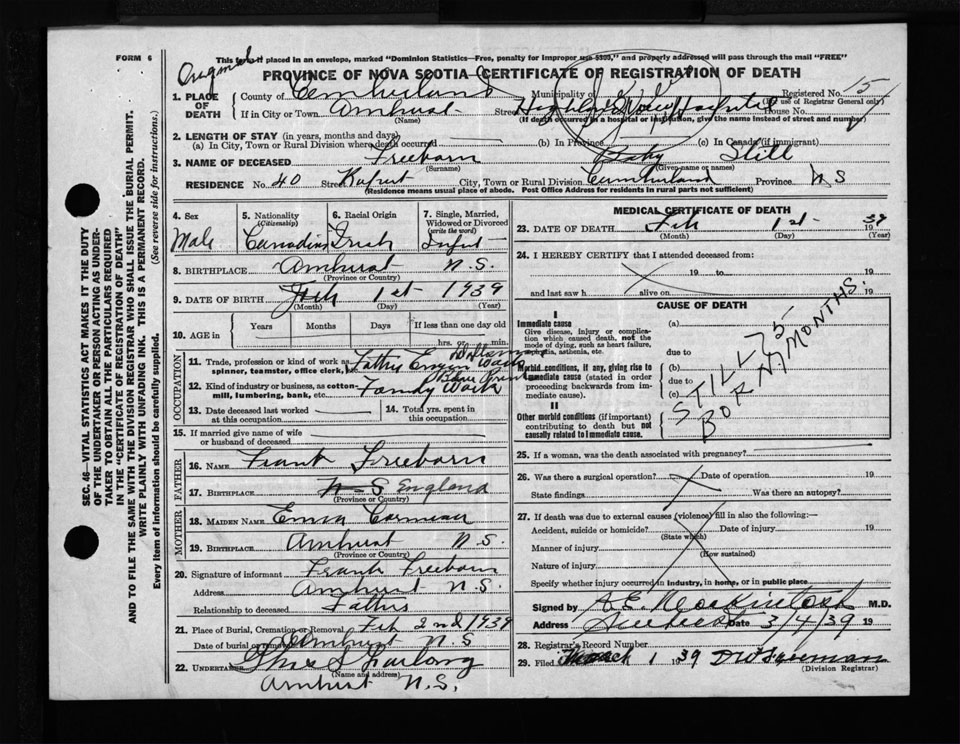 FORM 6
This form if placed in an envelope, marked "Dominion Statistics—Free, penalty for improper use $300," and properly addressed will pass through the mail "FREE"
PROVINCE OF NOVA SCOTIA—CERTIFICATE OF REGISTRATION OF DEATH
1. PLACE OF DEATH
County of Cumberland Municipality of Registered No. 15
(For use of Registrar General only)
If in City or Town Amherst Street Highland View Hospital House No.
(Name) (If death occurred in a hospital or institution, give the name instead of street and number)
2. LENGTH OF STAY (in years, months and days)
(a) In City, Town or Rural Division where death occurred (b) In Province (c) In Canada (if immigrant)
3. NAME OF DECEASED Freeborn Baby Still
(Surname) (Given name or names)
RESIDENCE No. 40 Street Rupert City, Town or Rural Division Cumberland Province N S
(Residence means usual place of abode. Post Office Address for residents in rural parts not sufficient)
SEC. 46—VITAL STATISTICS ACT MAKES IT THE DUTY
OF THE UNDERTAKER OR PERSON ACTING AS UNDER-
TAKER TO OBTAIN ALL THE PARTICULARS REQUIRED
IN THE "CERTIFICATE OF REGISTRATION OF DEATH"
AND TO FILE THE SAME WITH THE DIVISION REGISTRAR WHO SHALL ISSUE THE BURIAL PERMIT.
WRITE PLAINLY WITH UNFADING INK. THIS IS A PERMANENT RECORD.
Every item of information should be carefully supplied. (See reverse side for instructions.)
4. Sex
Male
5. Nationality
(Citizenship)
Canadian
6. Racial Origin
Irish
7. Single, Married,
Widowed or Divorced
(write the word)
Infant
8. BIRTHPLACE Amherst N.S.
(Province or Country)
9. DATE OF BIRTH Feb 1st 1939
(Month) (Day) (Year)
10. AGE in
Years Months Days If less than one day old
hrs. or min.
OCCUPATION
11. Trade, profession or kind of work as
spinner, teamster, office clerk, etc. Father
12. Kind of industry or business, as cotton-
mill, lumbering, bank, etc.
13. Date deceased last worked
at this occupation
14. Total yrs. spent in
this occupation
15. If married give name of wife
or husband of deceased
FATHER
16. NAME Frank Freeborn
17. BIRTHPLACE N-S England
(Province or Country)
MOTHER
18. MAIDEN NAME Emma
19. BIRTHPLACE Amherst N.S.
(Province or Country)
20. Signature of informant Frank Freeborn
Address Amherst N.S.
Relationship to deceased Father
21. Place of Burial, Cremation or Removal Feb 2nd 1939
Date of burial or removal Amherst N S
22. UNDERTAKER Furlong
(Name and address)
Amherst N.S.
MEDICAL CERTIFICATE OF DEATH
23. DATE OF DEATH Feb 1st 1939
(Month) (Day) (Year)
24. I HEREBY CERTIFY that I attended deceased from:
19 to 19
and last saw h alive on 19
CAUSE OF DEATH
I
Immediate cause
Give disease, injury or complica-
tion which caused death, not the
mode of dying, such as heart failure,
asphyxia, asthenia, etc.
(a)
due to
Morbid conditions, if any, giving rise to
immediate cause (stated in order
proceeding backwards from im-
mediate cause).
(b)
due to
(c)
II
Other morbid conditions (if important)
contributing to death but not
causally related to immediate cause.
STILL
BORN MONTHS.
25. If a woman, was the death associated with pregnancy?
26. Was there a surgical operation? Date of operation 19
State findings Was there an autopsy?
27. If death was due to external causes (violence) fill in also the following:—
Accident, suicide or homicide? Date of injury 19
(State which)
Manner of injury
(How sustained)
Nature of injury
Specify whether injury occurred in industry, in home, or in public place
Signed by A.E. Mackintosh M.D.
Address Amherst Date 3/4/39 19
28. Registrar's Record Number
29. Filed March 1 1939
(Division Registrar)